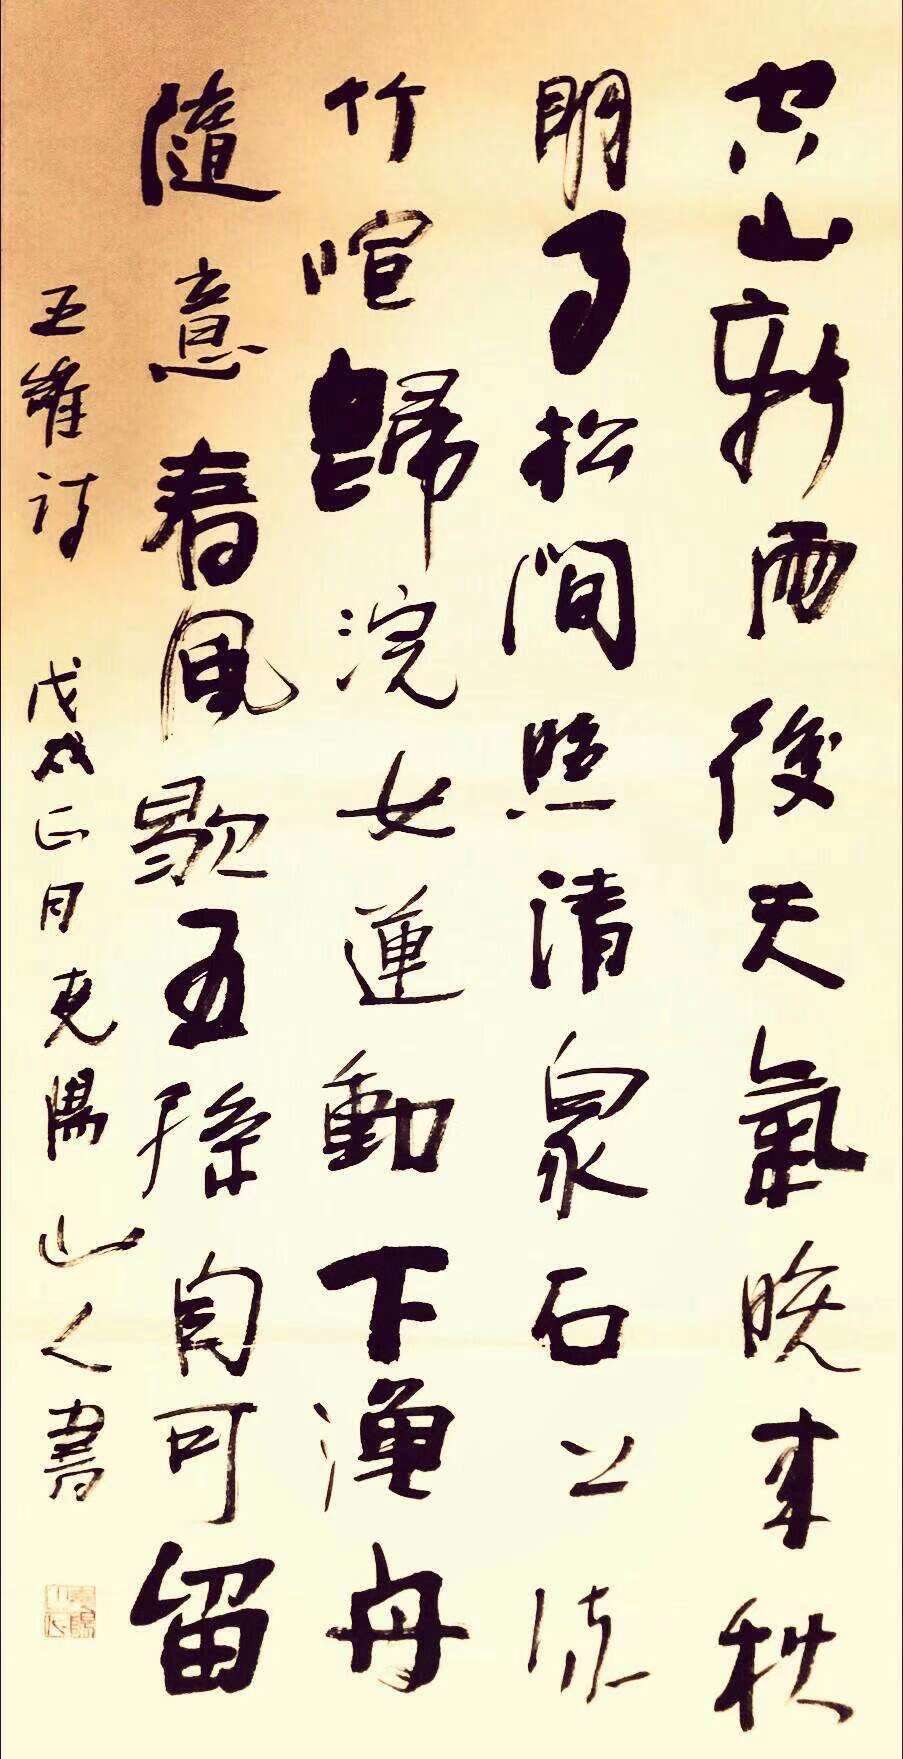 空山新雨後天氣晚来秋
明月松間照清泉石上流
竹喧歸浣女蓮動下漁舟
隨意春風歇王孫自可留
王維诗 戊戌正月 陽山人書